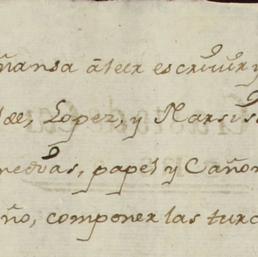 ñansa á leer escrivir y
des, Lopez, y Narsis
papel y Cañon
ño, componer las